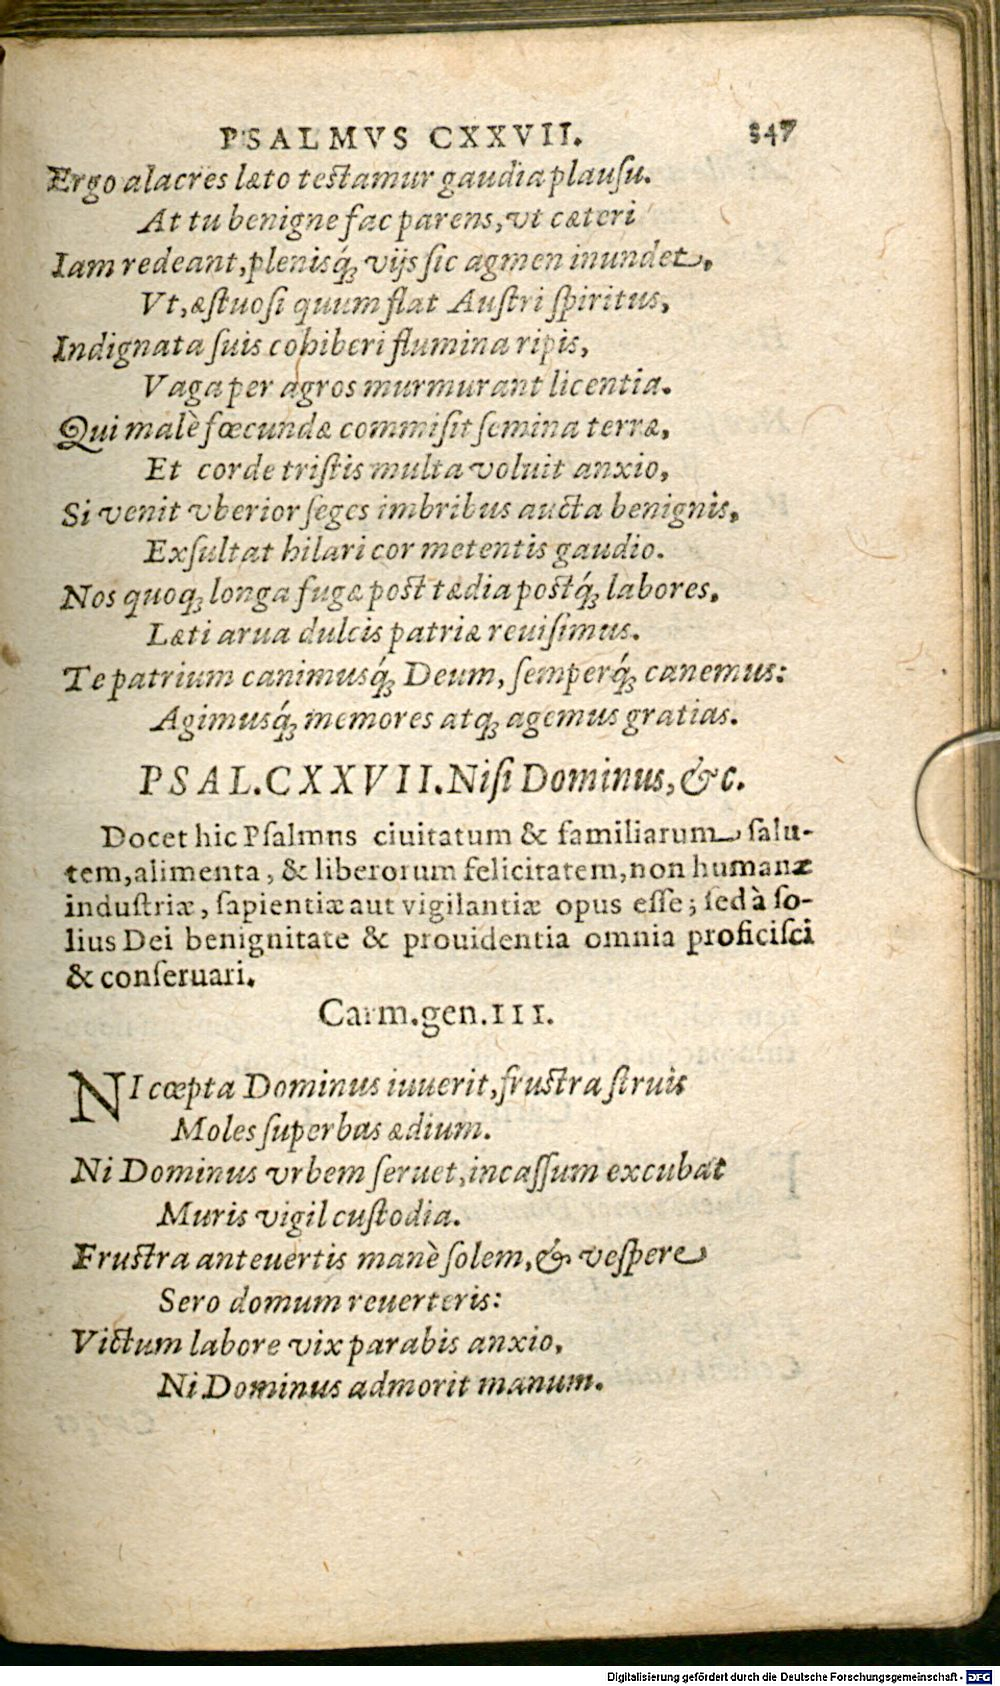 PSALMVS CXXVII. 347
Ergo alacres læto testamur gaudia plausu.
At tu benigne fac parens, vt cæteri
Iam redeant, plenisq́; vijs sic agmen inundet,
Vt, æstuosi quum flat Austri spiritus,
Indignata suis cohiberi flumina ripis,
Vaga per agros murmurant licentia.
Qui malè fœcundæ commisit semina terræ,
Et corde tristis multa voluit anxio,
Si venit vberior seges imbribus aucta benignis,
Exsultat hilari cor metentis gaudio.
Nos quoq; longa fugæ post tædia postq́; labores,
Læti arua dulcis patriæ reuisimus.
Te patrium canimusq́; Deum, semperq́; canemus:
Agimusq́; memores atq; agemus gratias.
PSAL. CXXVII. Nisi Dominus, &c.
Docet hic Psalmns ciuitatum & familiarum salu-
tem, alimenta, & liberorum felicitatem, non humanæ
industriæ, sapientiæ aut vigilantiæ opus esse; sed à so-
lius Dei benignitate & prouidentia omnia proficisci
& conseruari.
Carm. gen. III.
NI cœpta Dominus iuuerit, frustra struis
Moles superbas ædium.
Ni Dominus vrbem seruet, incassum excubat
Muris vigil custodia.
Frustra anteuertis manè solem, & vespere
Sero domum reuerteris:
Victum labore vix parabis anxio,
Ni Dominus admorit manum.
Digitalisierung gefördert durch die Deutsche Forschungsgemeinschaft - DFG